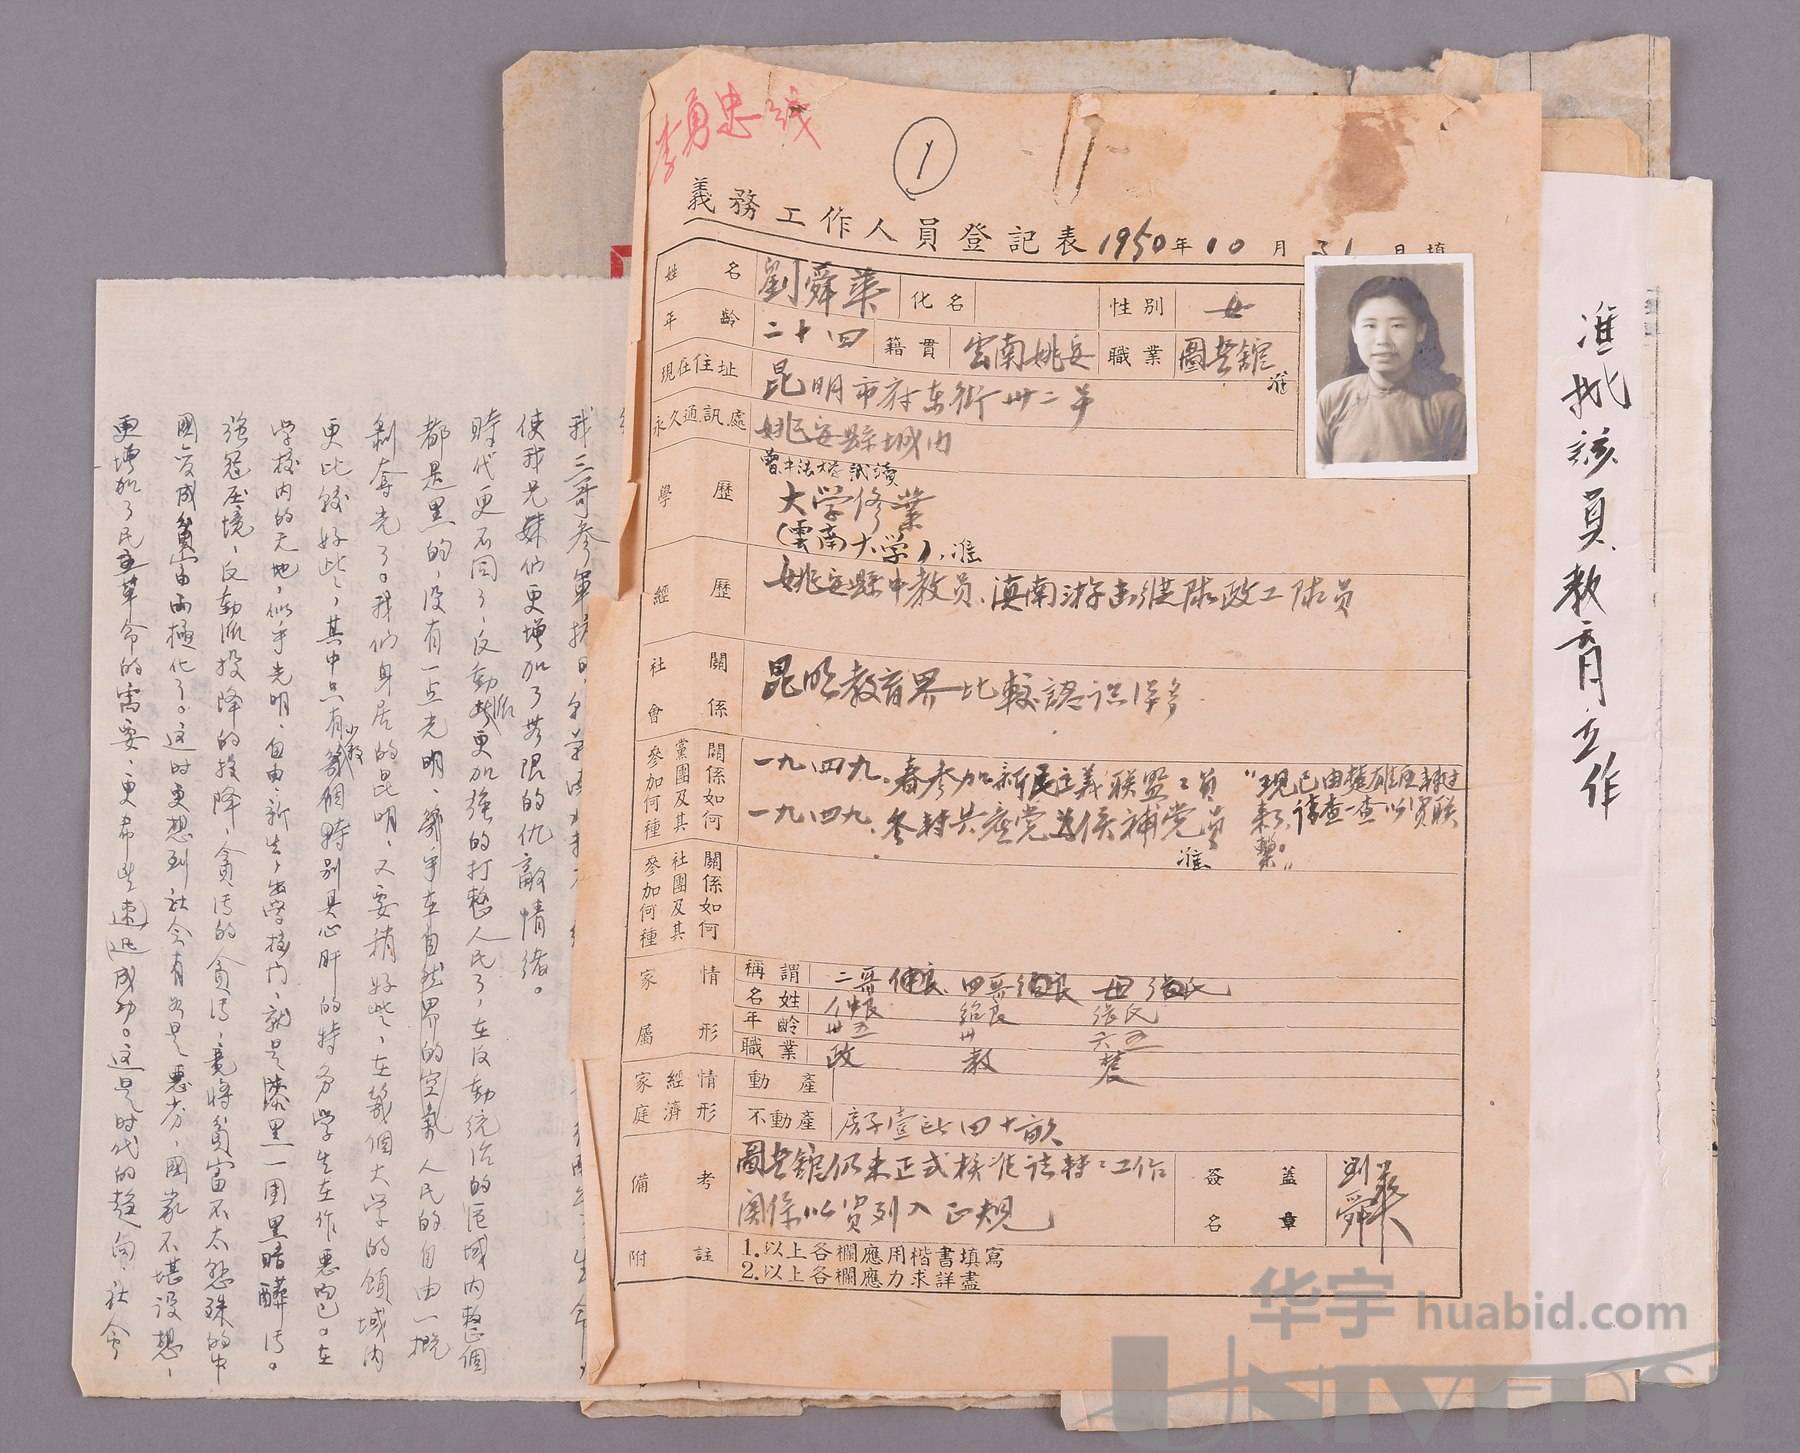 李勇忠线
1
義務工作人員登記表 1950年10月31日填
姓名 劉舜華 化名 性别 女
年齡 二十四 籍貫 雲南姚安 職業 圖書館
准
現在住址 昆明市府东街卅二号
永久通訊處 姚安縣城内
曾中法大学試讀
學歷 大学修業
(雲南大学)、准
經歷 姚安縣中教員、滇南游击縱隊政工隊員
社會關係 昆明教育界比較認识得多
參加何種黨團及其關係如何
一九四九、春参加新民主義联盟工員
一九四九、冬轉共產党為候補党員
准
"現已由楚雄匪轉过来了、請查一查以資联繫。"
參加何種社團及其關係如何
家屬情形
稱謂 二哥 四哥 母
姓名 仲良 紹良 張氏
年齡 卅五 卅 六五
職業 政 教 農
家庭經濟情形 動產
不動產 房子壹此四十畝
備考 圖書館仍未正式核准請轉工作
関係以資列入正規
簽名蓋章 劉舜華
附註 1.以上各欄應用楷書填寫
2.以上各欄應力求詳盡
准批該員教育工作
我三哥参軍抗日
使我兄妹们更增加了無限的仇敵情绪。
時代更不同了、反動派更加強的打整人民了，在反動統治的區域内整個
都是黑的，没有一点光明、幾乎在自然界的空氣人民的自由一概
剝奪光了。我们身居的昆明，又要稍好些，在幾個大学的領域内
更比較好些，其中只有少数幾個特别具心肝的特务学生在作惡而已。在
学校内的天地，似乎光明、自由、新生，出学校门，就是漆黑一團黑暗醉污。
強冠压境、反動派投降的投降、貪污的貪污，竟將貧富不太懸殊的中
國变成貧富兩極化了。这时更想到社会有如是惡劣，國家不堪設想，
更增加了民主革命的需要、更希望速迅成功。这是时代的趋向、社会
华宇 huabid.com
UNIVERSE